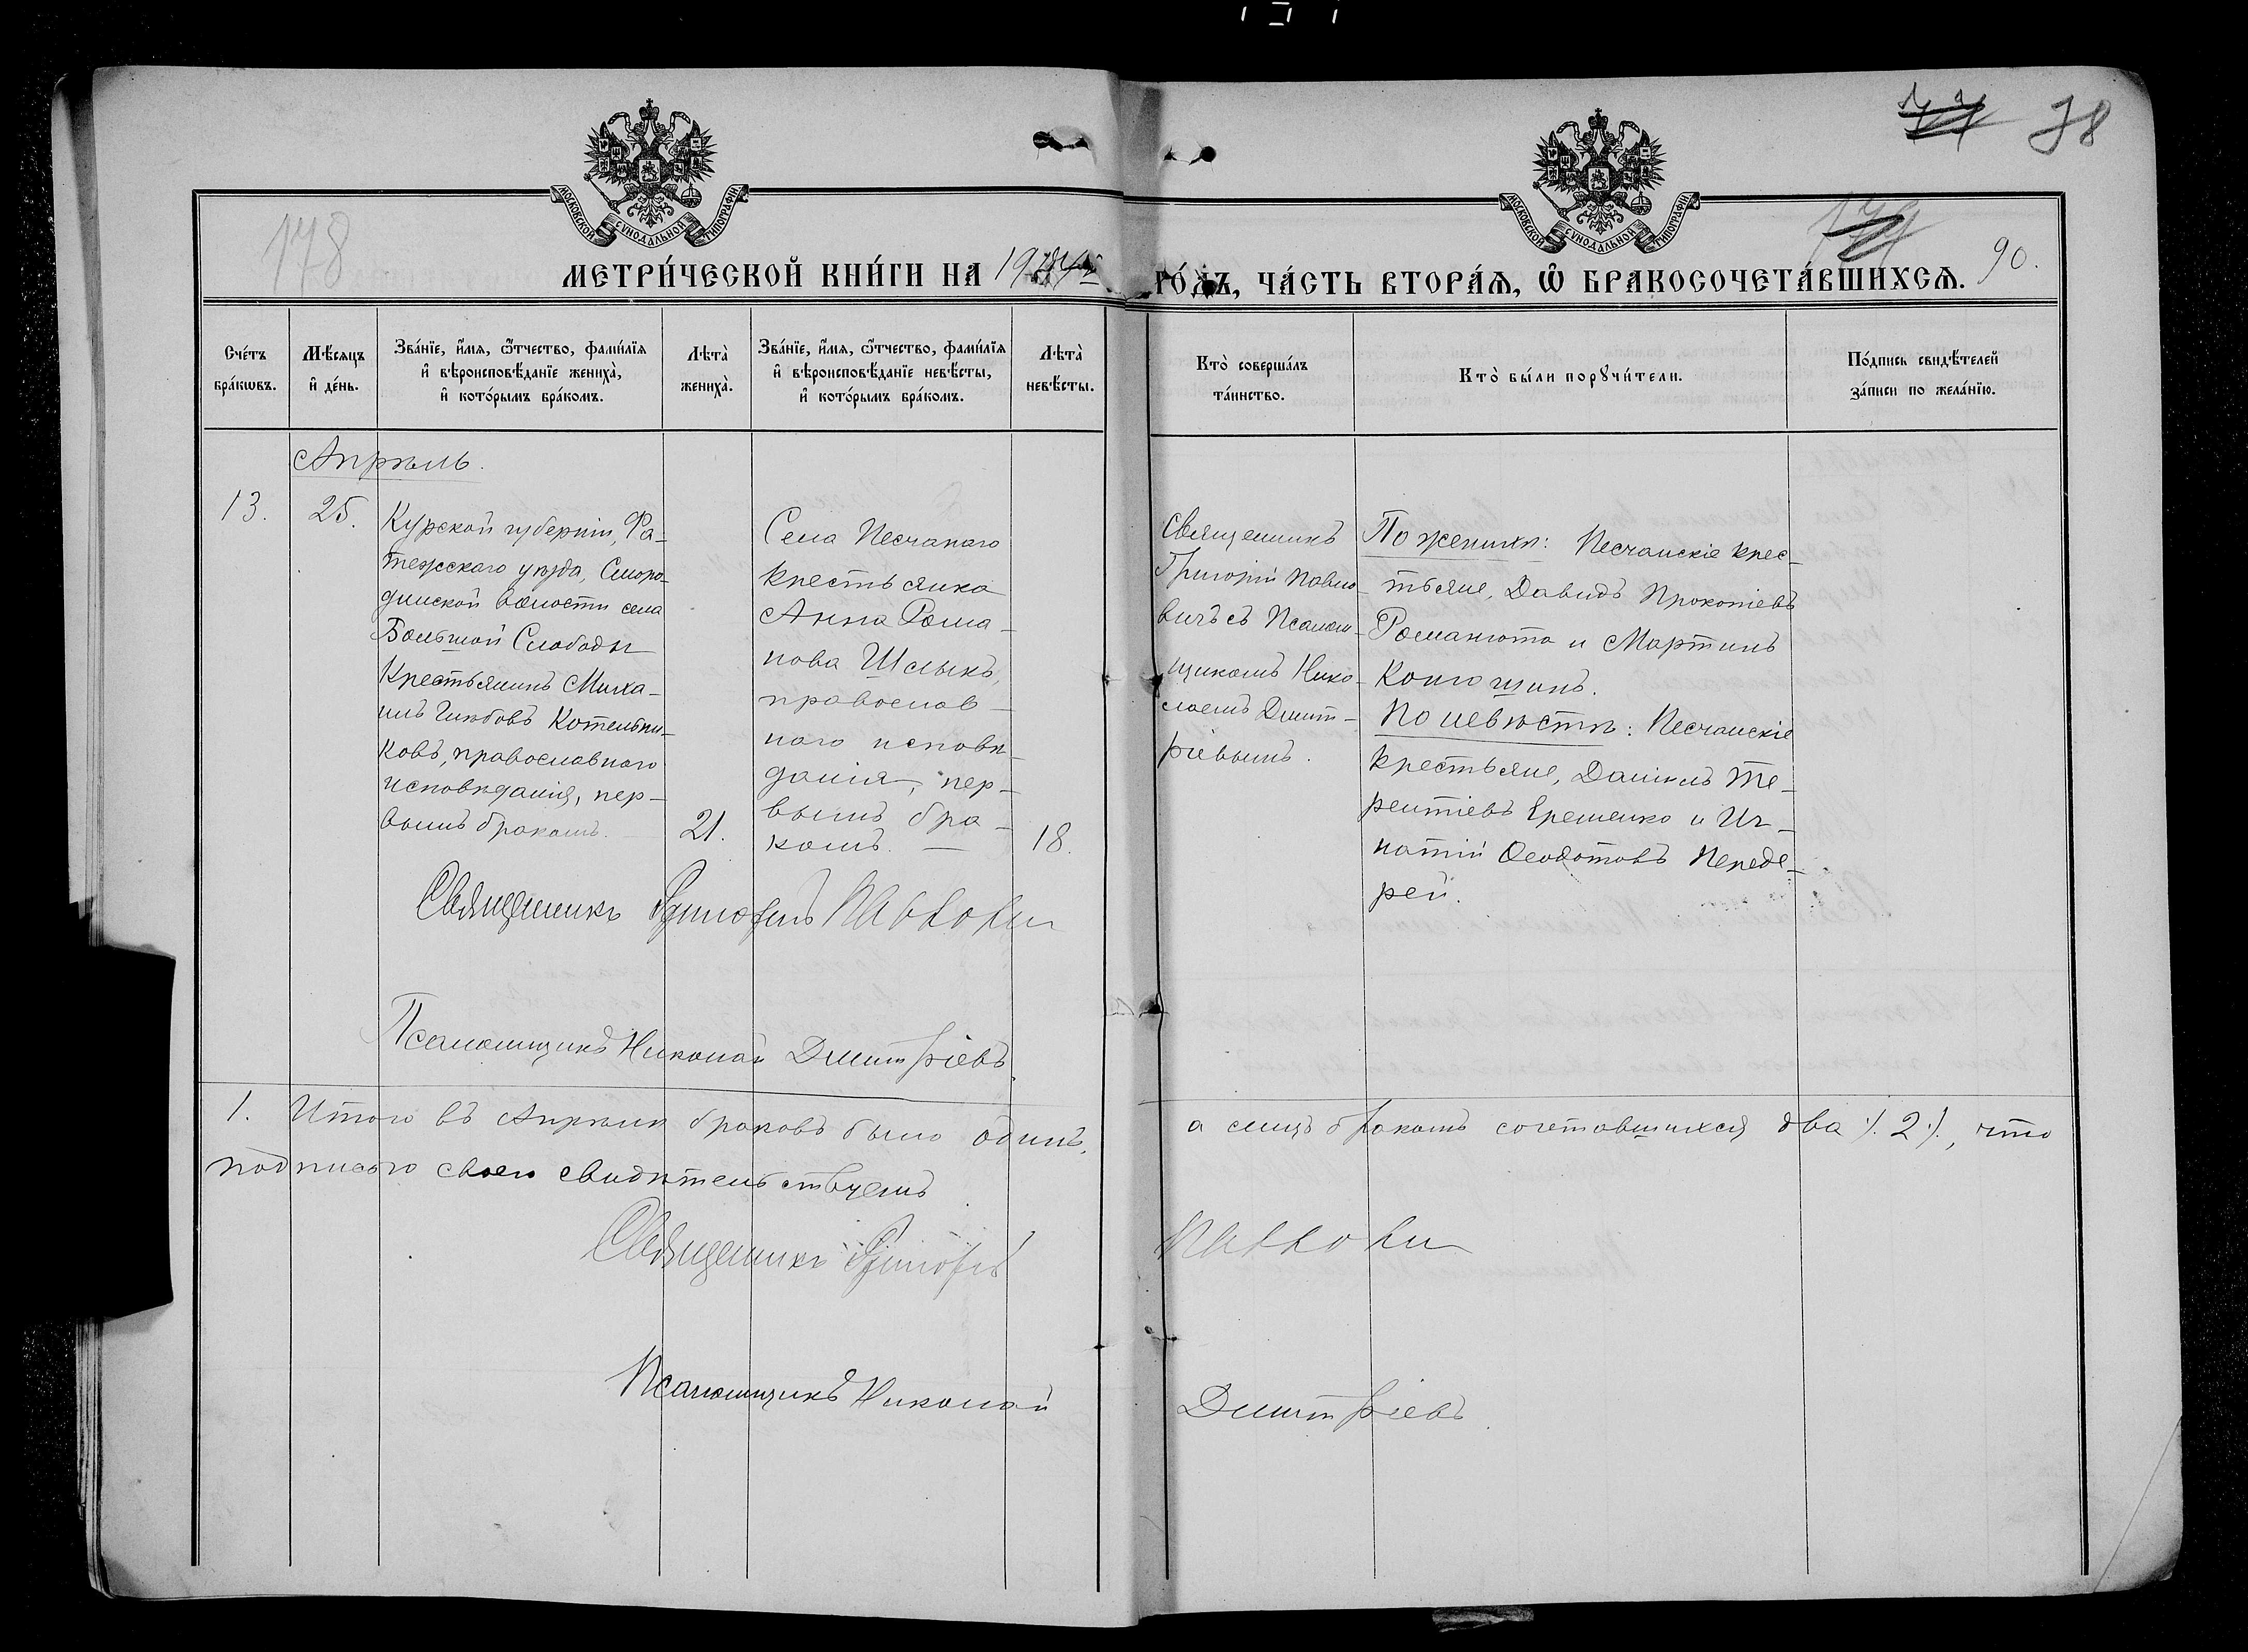 77 78
МОСКОВСКОЙ СѴНОДАЛЬНОЙ ТИПОГРАФІИ
МОСКОВСКОЙ СѴНОДАЛЬНОЙ ТИПОГРАФІИ
178
90.
МЕТРИ́ЧЕСКОЙ КНИ́ГИ НА 19 ГО́ДЪ, ЧА́СТЬ ВТОРА́Ѧ, Ѽ БРАКОСОЧЕТА́ВШИХСѦ.
Сче́тъ бра́кѡвъ.
Мѣ́сѧцъ и҆ де́нь.
Зва́нїе, и҆́мѧ, ѻ҆́тчество, фами́лїѧ
и҆ вѣроисповѣ́данїе жениха̀,
и҆ кото́рымъ бра́комъ.
Лѣ́та̀ жениха̀.
Зва́нїе, и҆́мѧ, ѻ҆́тчество, фами́лїѧ
и҆ вѣроисповѣ́данїе невѣ́сты,
и҆ кото́рымъ бра́комъ.
Лѣ́та̀ невѣ́сты.
Кто̀ соверша́лъ
та́инство.
Кто̀ бы́ли порꙋчи́тели.
По́дпись свидѣ́телей
за́писи по жела́нїю.
Апрѣль.
13.
25.
Курской губерніи, Фа-
тежскаго уѣзда, Сморо-
динской волости села
Большой Слободы
Крестьянинъ Миха-
илъ Глѣбовъ Котельни-
ковъ, православнаго
исповѣданія, пер-
вымъ бракомъ.
21.
Села Песчанаго
крестьянка
Анна Рома-
нова Шлыкъ,
православ-
наго исповѣ-
данія, пер-
вымъ бра-
комъ.
18.
Священникъ
Григорій Павло-
вичъ съ Псалом-
щикомъ Нико-
лаемъ Дмит-
ріевымъ.
По женихѣ: Песчанскіе крес-
тьяне, Давидъ Прокопіевъ
Романюта и Мартинъ
Конюшинъ.
По невѣстѣ: Песчанскіе
крестьяне, Даніилъ Те-
рентіевъ Еременко и Иг-
натій Ѳеодотовъ Переде-
рей.
Священникъ Григорій Павлович
Псаломщикъ Николай Дмитріевъ.
1. Итого въ Апрѣлѣ браковъ было одинъ, а лицъ бракомъ сочетавшихся два ·/. 2 ·/., что
подписью своею свидѣтельствуемъ.
Священникъ Григорій Павлович
Псаломщикъ Николай Дмитріевъ.